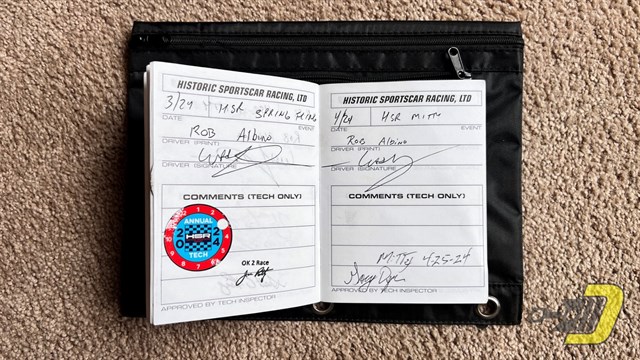 HISTORIC SPORTSCAR RACING, LTD
3/24 HSR SPRING FLING
DATE EVENT
ROB Albino
DRIVER (PRINT)
DRIVER (SIGNATURE)
COMMENTS (TECH ONLY)
ANNUAL
HSR
2024
TECH
OK 2 Race
APPROVED BY TECH INSPECTOR
HISTORIC SPORTSCAR RACING, LTD
4/24 HSR MITTY
DATE EVENT
ROB Albino
DRIVER (PRINT)
DRIVER (SIGNATURE)
COMMENTS (TECH ONLY)
MITTY 4-25-24
APPROVED BY TECH INSPECTOR